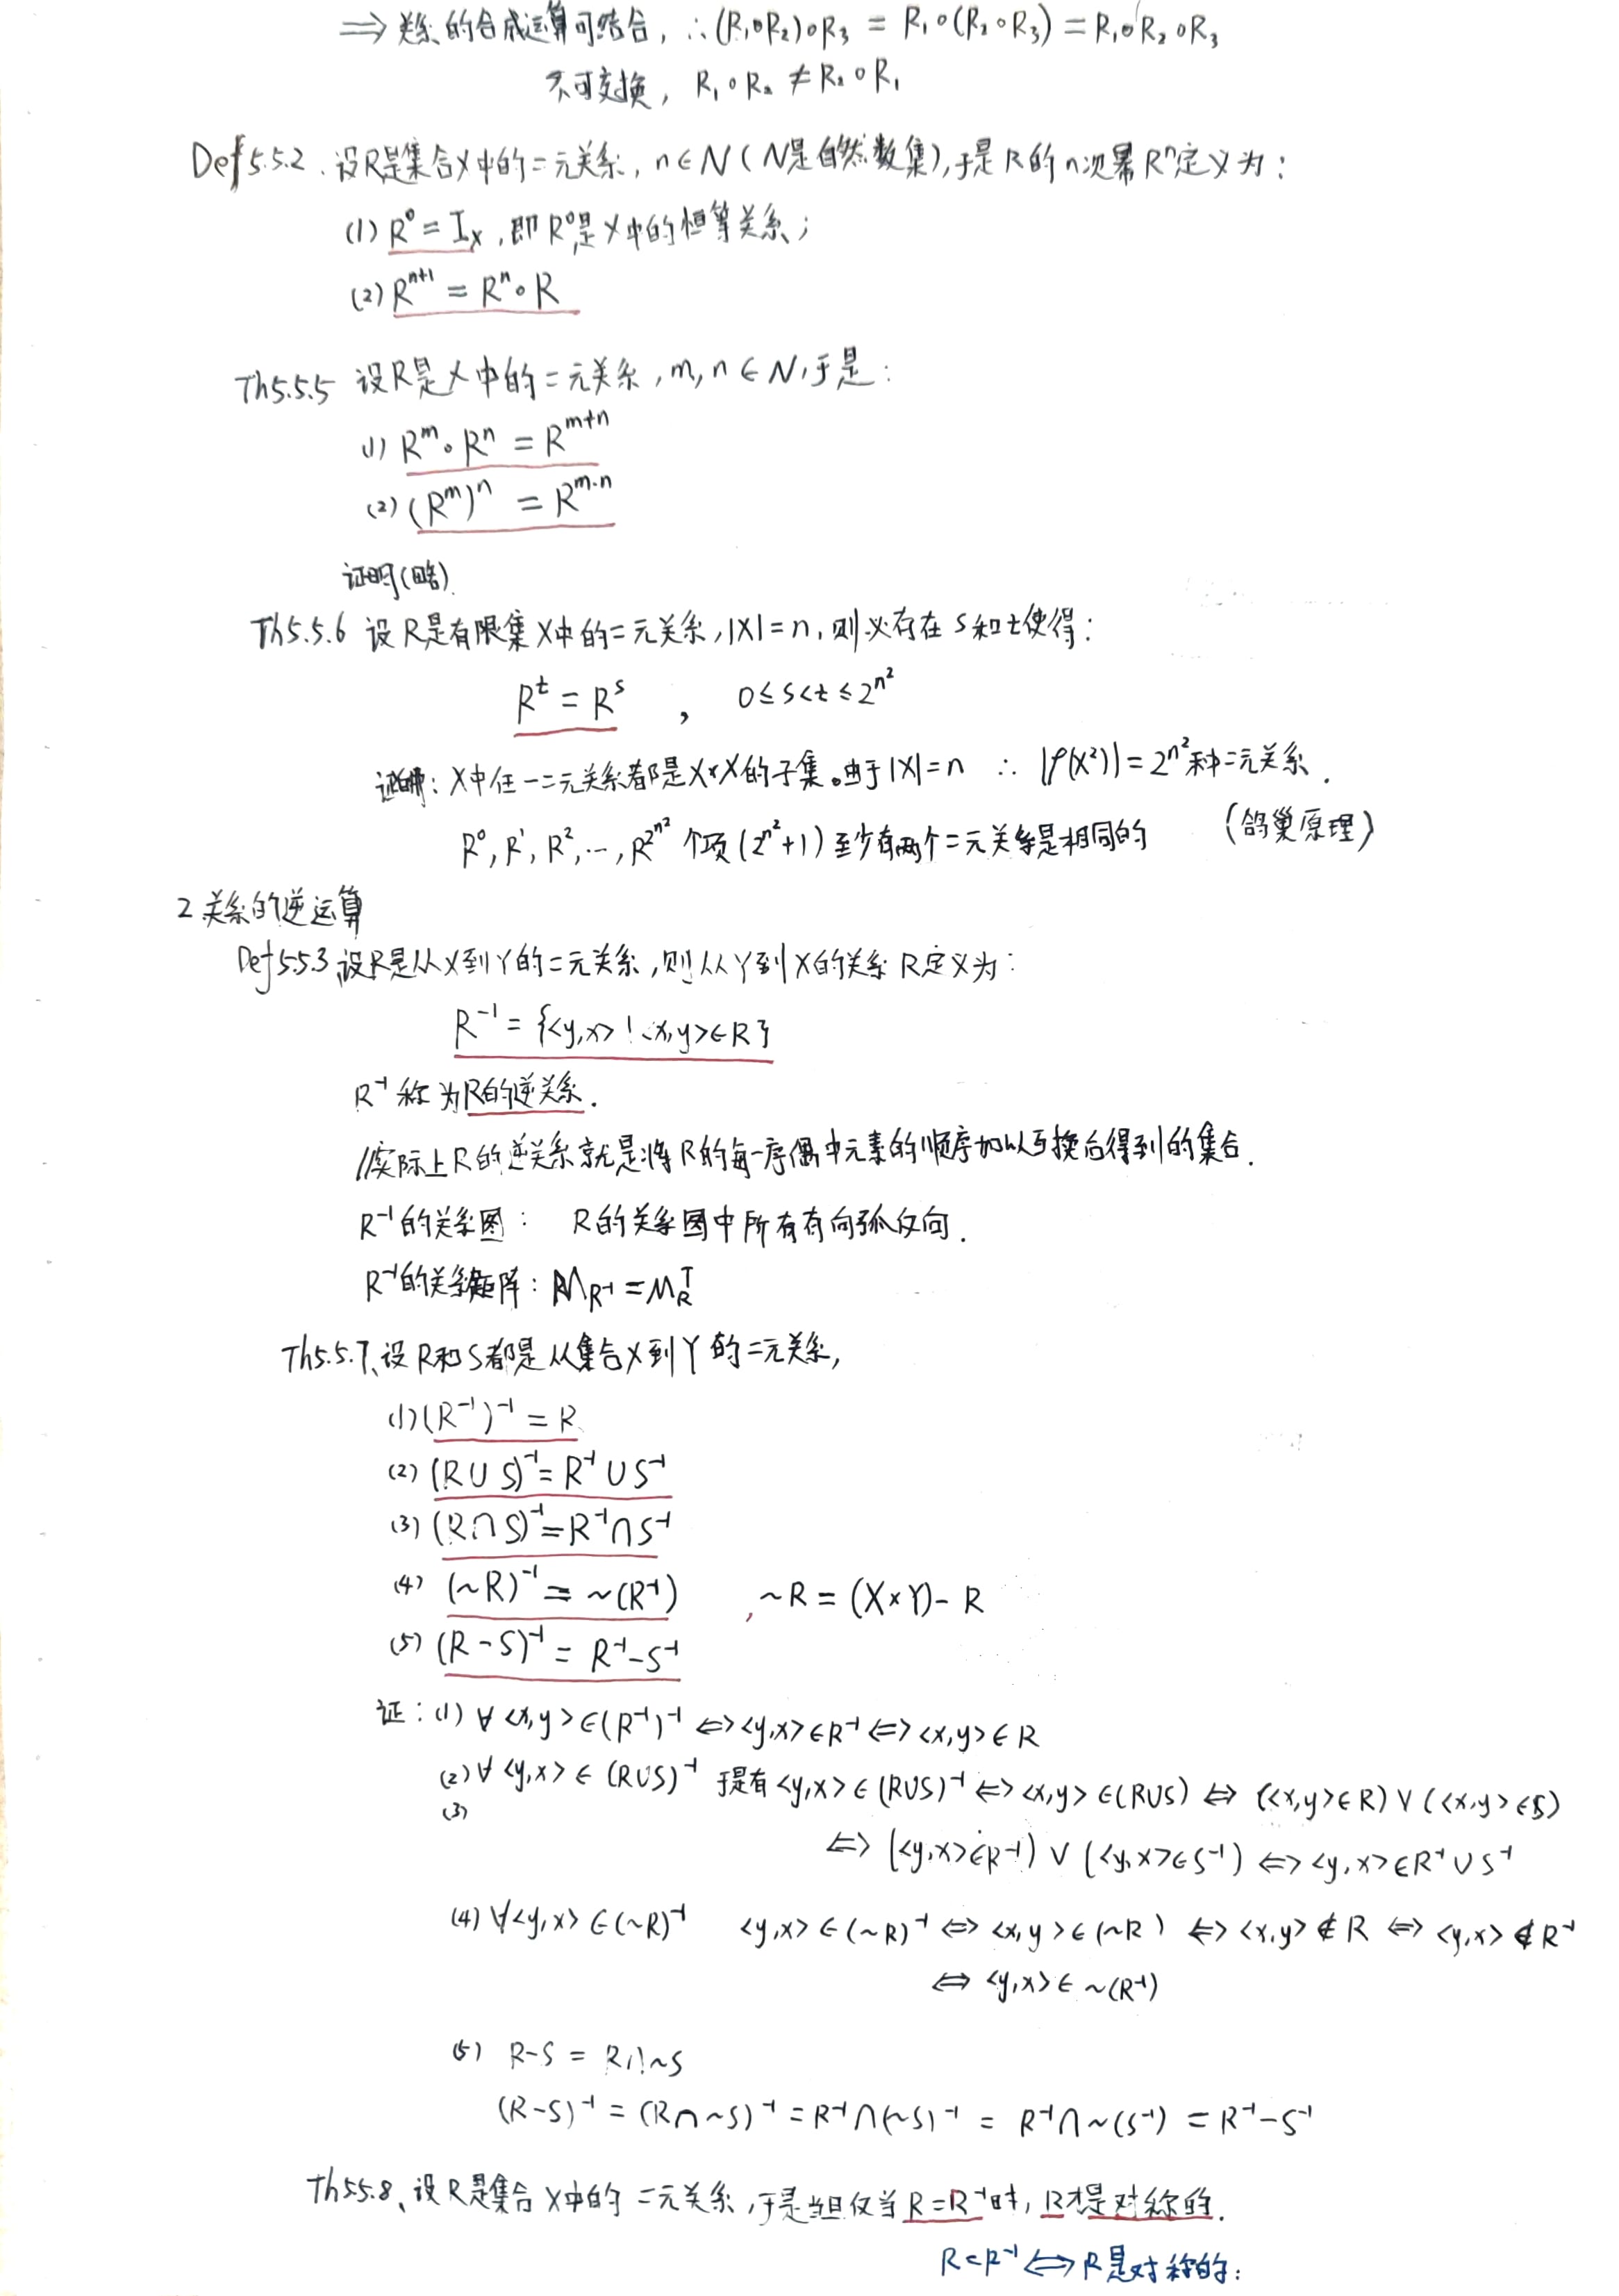 ⟹ 关系的合成运算可结合，∴(R₁∘R₂)∘R₃ = R₁∘(R₂∘R₃) = R₁∘R₂∘R₃
不可交换，R₁∘R₂ ≠ R₂∘R₁
Def 5.5.2、设R是集合X中的二元关系，n∈N（N是自然数集），于是R的n次幂Rⁿ定义为：
(1) R⁰ = Iₓ，即R⁰是X中的恒等关系；
(2) Rⁿ⁺¹ = Rⁿ∘R
Th5.5.5 设R是X中的二元关系，m, n ∈ N，于是：
(1) Rᵐ∘Rⁿ = Rᵐ⁺ⁿ
(2) (Rᵐ)ⁿ = R^{m·n}
证明(略)
Th5.5.6 设R是有限集X中的二元关系，|X|=n，则必存在s和t使得：
Rᵗ = Rˢ ， 0≤s<t≤2^{n²}
证明：X中任一二元关系都是X×X的子集。由于|X|=n ∴ |𝒫(X²)|=2^{n²}种二元关系．
R⁰, R¹, R², …, R^{2^{n²}} 个项（2^{n²}+1）至少有两个二元关系是相同的 （鸽巢原理）
2 关系的逆运算
Def 5.5.3、设R是从X到Y的二元关系，则从Y到X的关系R定义为：
R⁻¹ = {<y,x> | <x,y>∈R}
R⁻¹ 称为R的逆关系．
//实际上R的逆关系就是将R的每一序偶中元素的顺序加以互换后得到的集合．
R⁻¹的关系图： R的关系图中所有有向弧反向．
R⁻¹的关系矩阵：M_{R⁻¹} = M_R^T
Th5.5.7、设R和S都是从集合X到Y的二元关系，
(1) (R⁻¹)⁻¹ = R
(2) (R∪S)⁻¹ = R⁻¹∪S⁻¹
(3) (R∩S)⁻¹ = R⁻¹∩S⁻¹
(4) (~R)⁻¹ = ~(R⁻¹) , ~R = (X×Y)- R
(5) (R-S)⁻¹ = R⁻¹-S⁻¹
证：(1) ∀ <x,y>∈(R⁻¹)⁻¹ ⟺ <y,x>∈R⁻¹ ⟺ <x,y>∈R
(2) ∀ <y,x> ∈ (R∪S)⁻¹ 于是有<y,x>∈(R∪S)⁻¹ ⟺ <x,y>∈(R∪S) ⟺ (<x,y>∈R)∨(<x,y>∈S)
(3)
⟺ (<y,x>∈R⁻¹)∨(<y,x>∈S⁻¹) ⟺ <y,x>∈R⁻¹∪S⁻¹
(4) ∀<y,x>∈(~R)⁻¹ <y,x>∈(~R)⁻¹ ⟺ <x,y>∈(~R) ⟺ <x,y>∉R ⟺ <y,x>∉R⁻¹
⟺ <y,x>∈ ~(R⁻¹)
(5) R-S = R∩~S
(R-S)⁻¹ = (R∩~S)⁻¹ = R⁻¹∩(~S)⁻¹ = R⁻¹∩~(S⁻¹) = R⁻¹-S⁻¹
Th5.5.8、设R是集合X中的二元关系，于是当且仅当R=R⁻¹时，R才是对称的．
R=R⁻¹ ⟺ R是对称的：